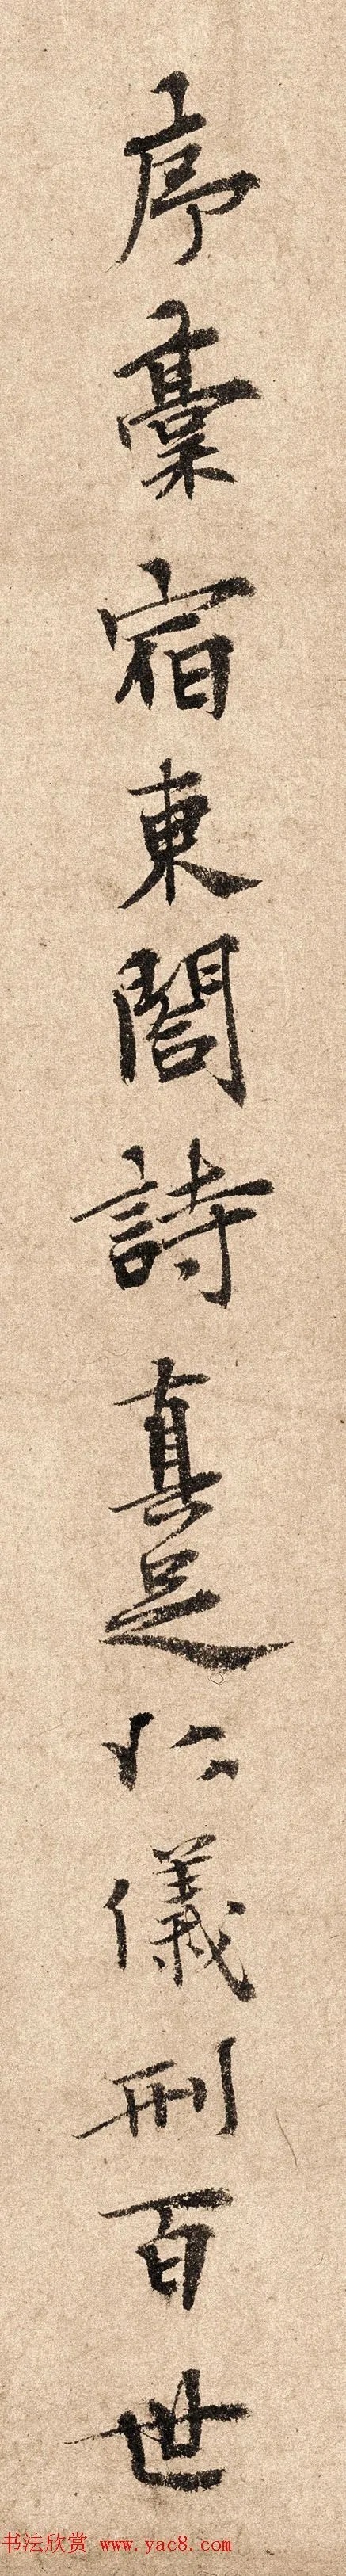 序藁宿東閤詩真足以儀刑百世
书法欣赏 www.yac8.com